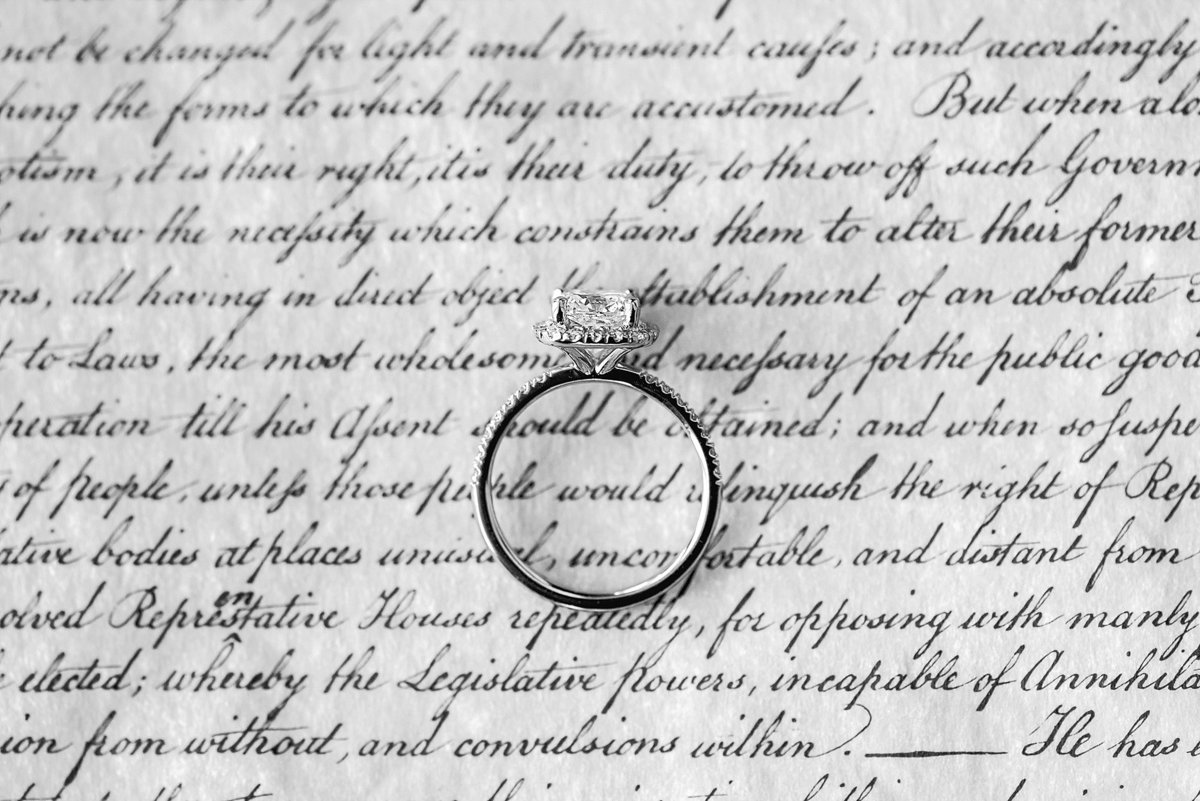 not be changed for light and transient cauſes; and accordingly
hing the forms to which they are accustomed. But when a lo
otism, it is their right, it is their duty, to throw off such Governm
is now the neceſsity which constrains them to alter their former
ns, all having in direct object the eſtablishment of an absolute
t to Laws, the most wholesome and neceſsary for the public good
peration till his Aſsent should be obtained; and when so suspe
of people, unleſs those people would relinquish the right of Rep
lative bodies at places unusual, uncomfortable, and distant from
olved Representative Houses repeatedly, for opposing with manly
elected; whereby the Legislative powers, incapable of Annihila
ion from without, and convulsions within. — He has e